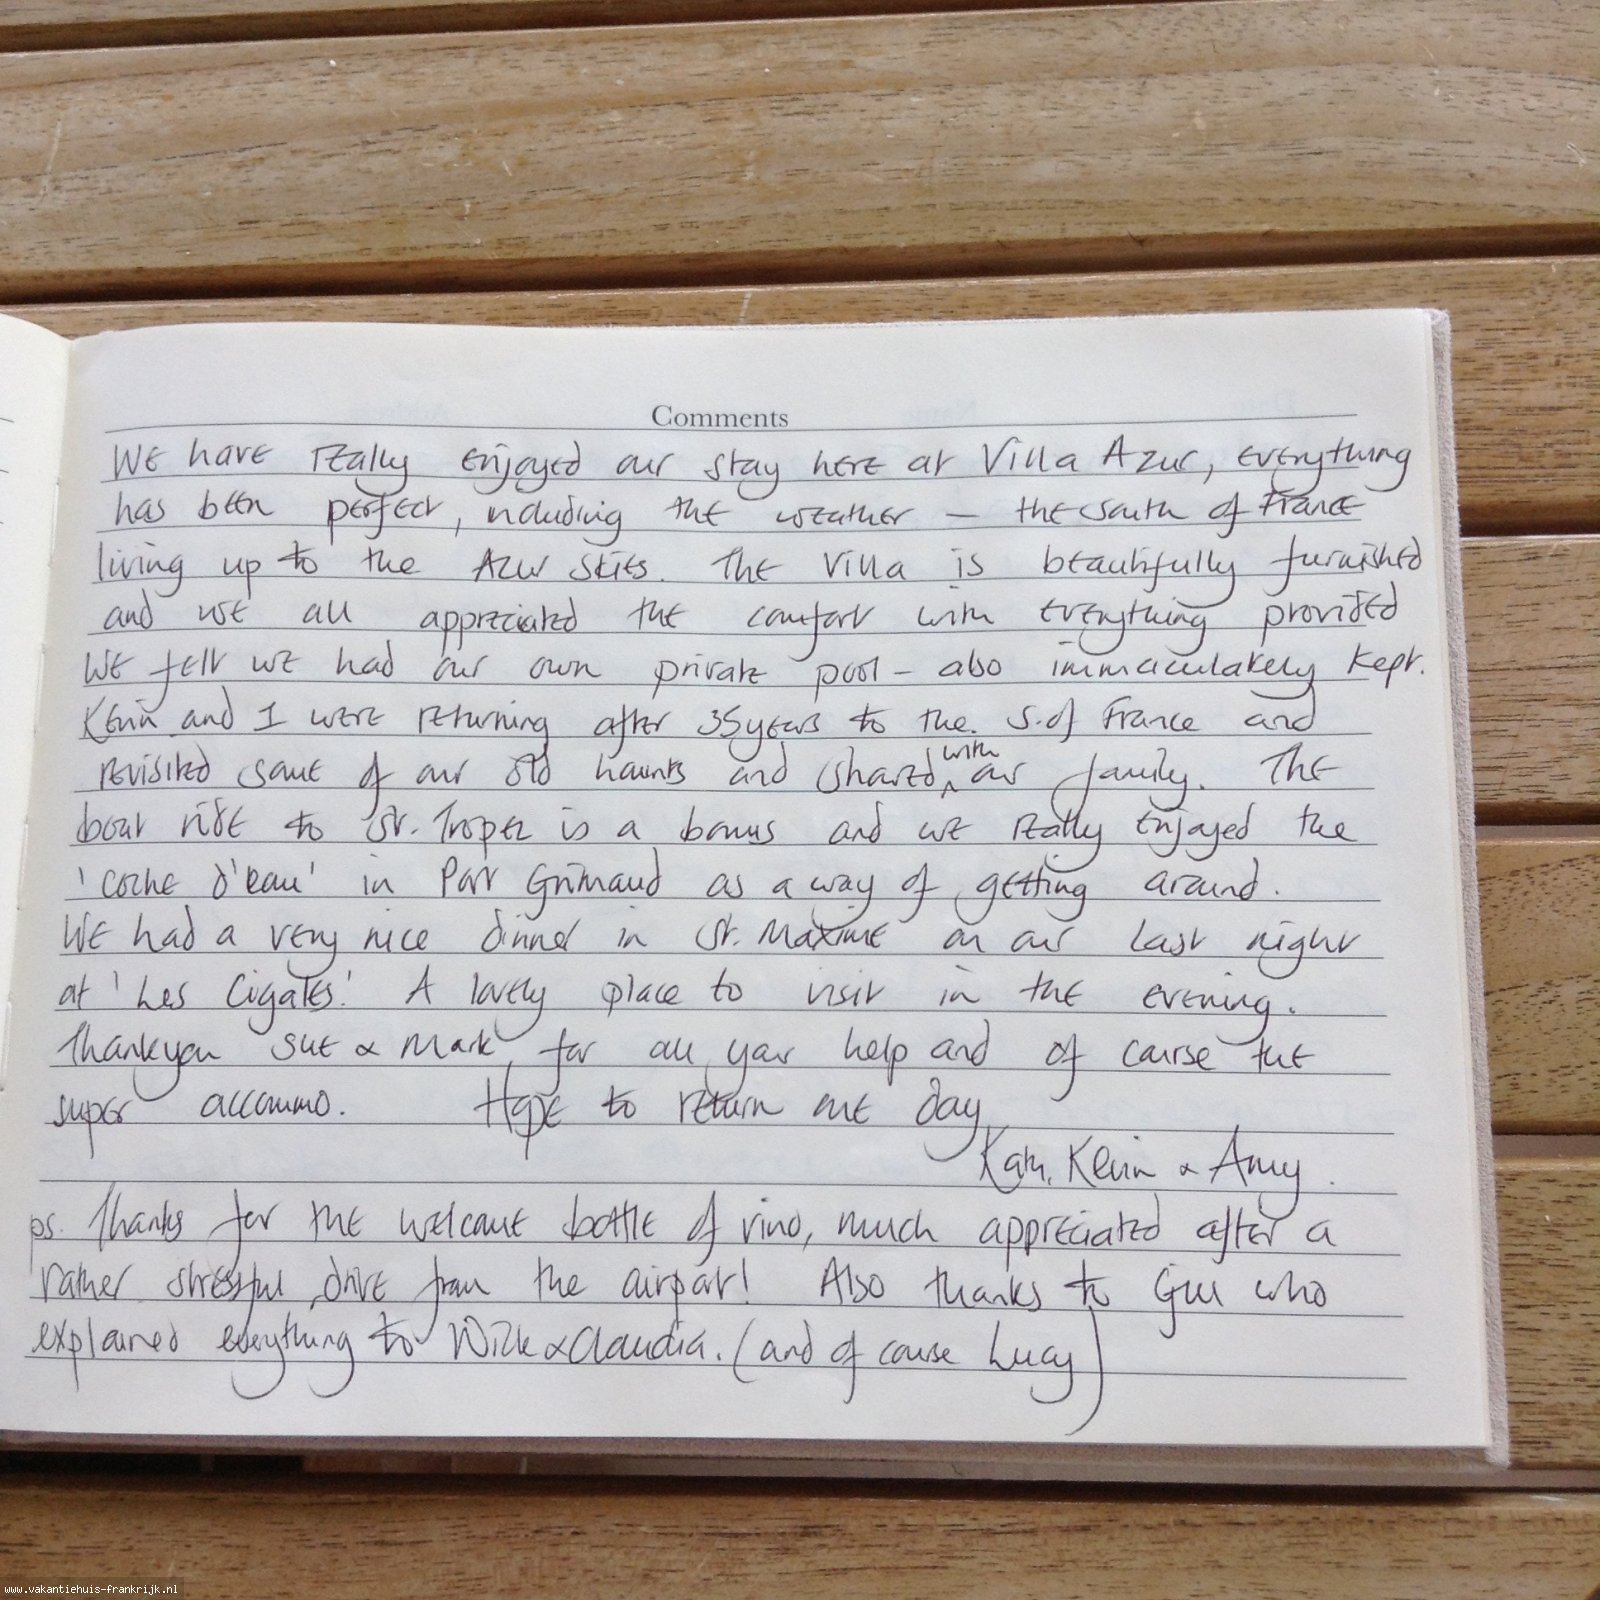 Comments
We have really enjoyed our stay here at Villa Azur, everything
has been perfect, including the weather – the south of France
living up to the Azur skies. The Villa is beautifully furnished
and we all appreciated the comfort with everything provided
We felt we had our own private pool – also immaculately kept.
Kevin and I were returning after 35 years to the S. of France and
revisited some of our old haunts and shared with our family. The
boat ride to St. Tropez is a bonus and we really enjoyed the
'coche d'eau' in Port Grimaud as a way of getting around.
We had a very nice dinner in St. Maxime on our last night
at 'Les Cigales'. A lovely place to visit in the evening.
Thankyou Sue & Mark for all your help and of course the
super accommo. Hope to return one day
Kath, Kevin & Amy.
ps. Thanks for the welcome bottle of vino, much appreciated after a
rather stressful drive from the airport! Also thanks to Gill who
explained everything to &Claudia. (and of course Lucy)
www.vakantiehuis-frankrijk.nl